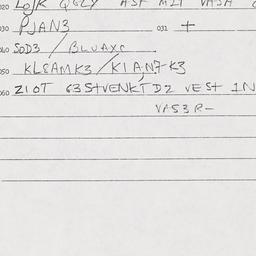 020 LOJK QGLY ASF MZI VASA
030 PJAN3 031 +
040 SOD3 / BLUAXC
050 KLSAMK3 / KIAN7-K3
060 ZIOT 63StVENKTD2 VEST IN
VAS3R-